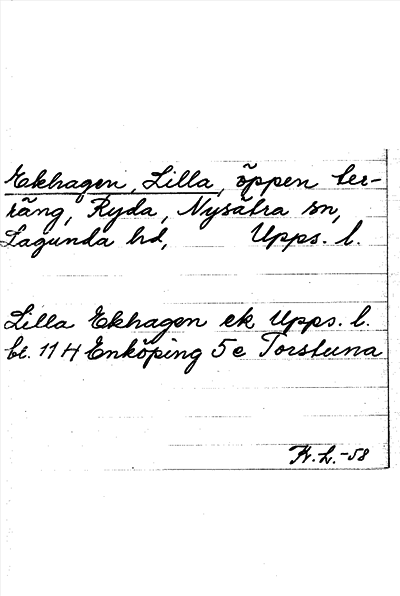 Ekhagen, Lilla, öppen ter-
räng, Ryda, Nysätra sn,
Lagunda hd, Upps. l.
Lilla Ekhagen ek Upps. l.
bl. 11 H Enköping 5 e Torstuna
Fr. L. -58